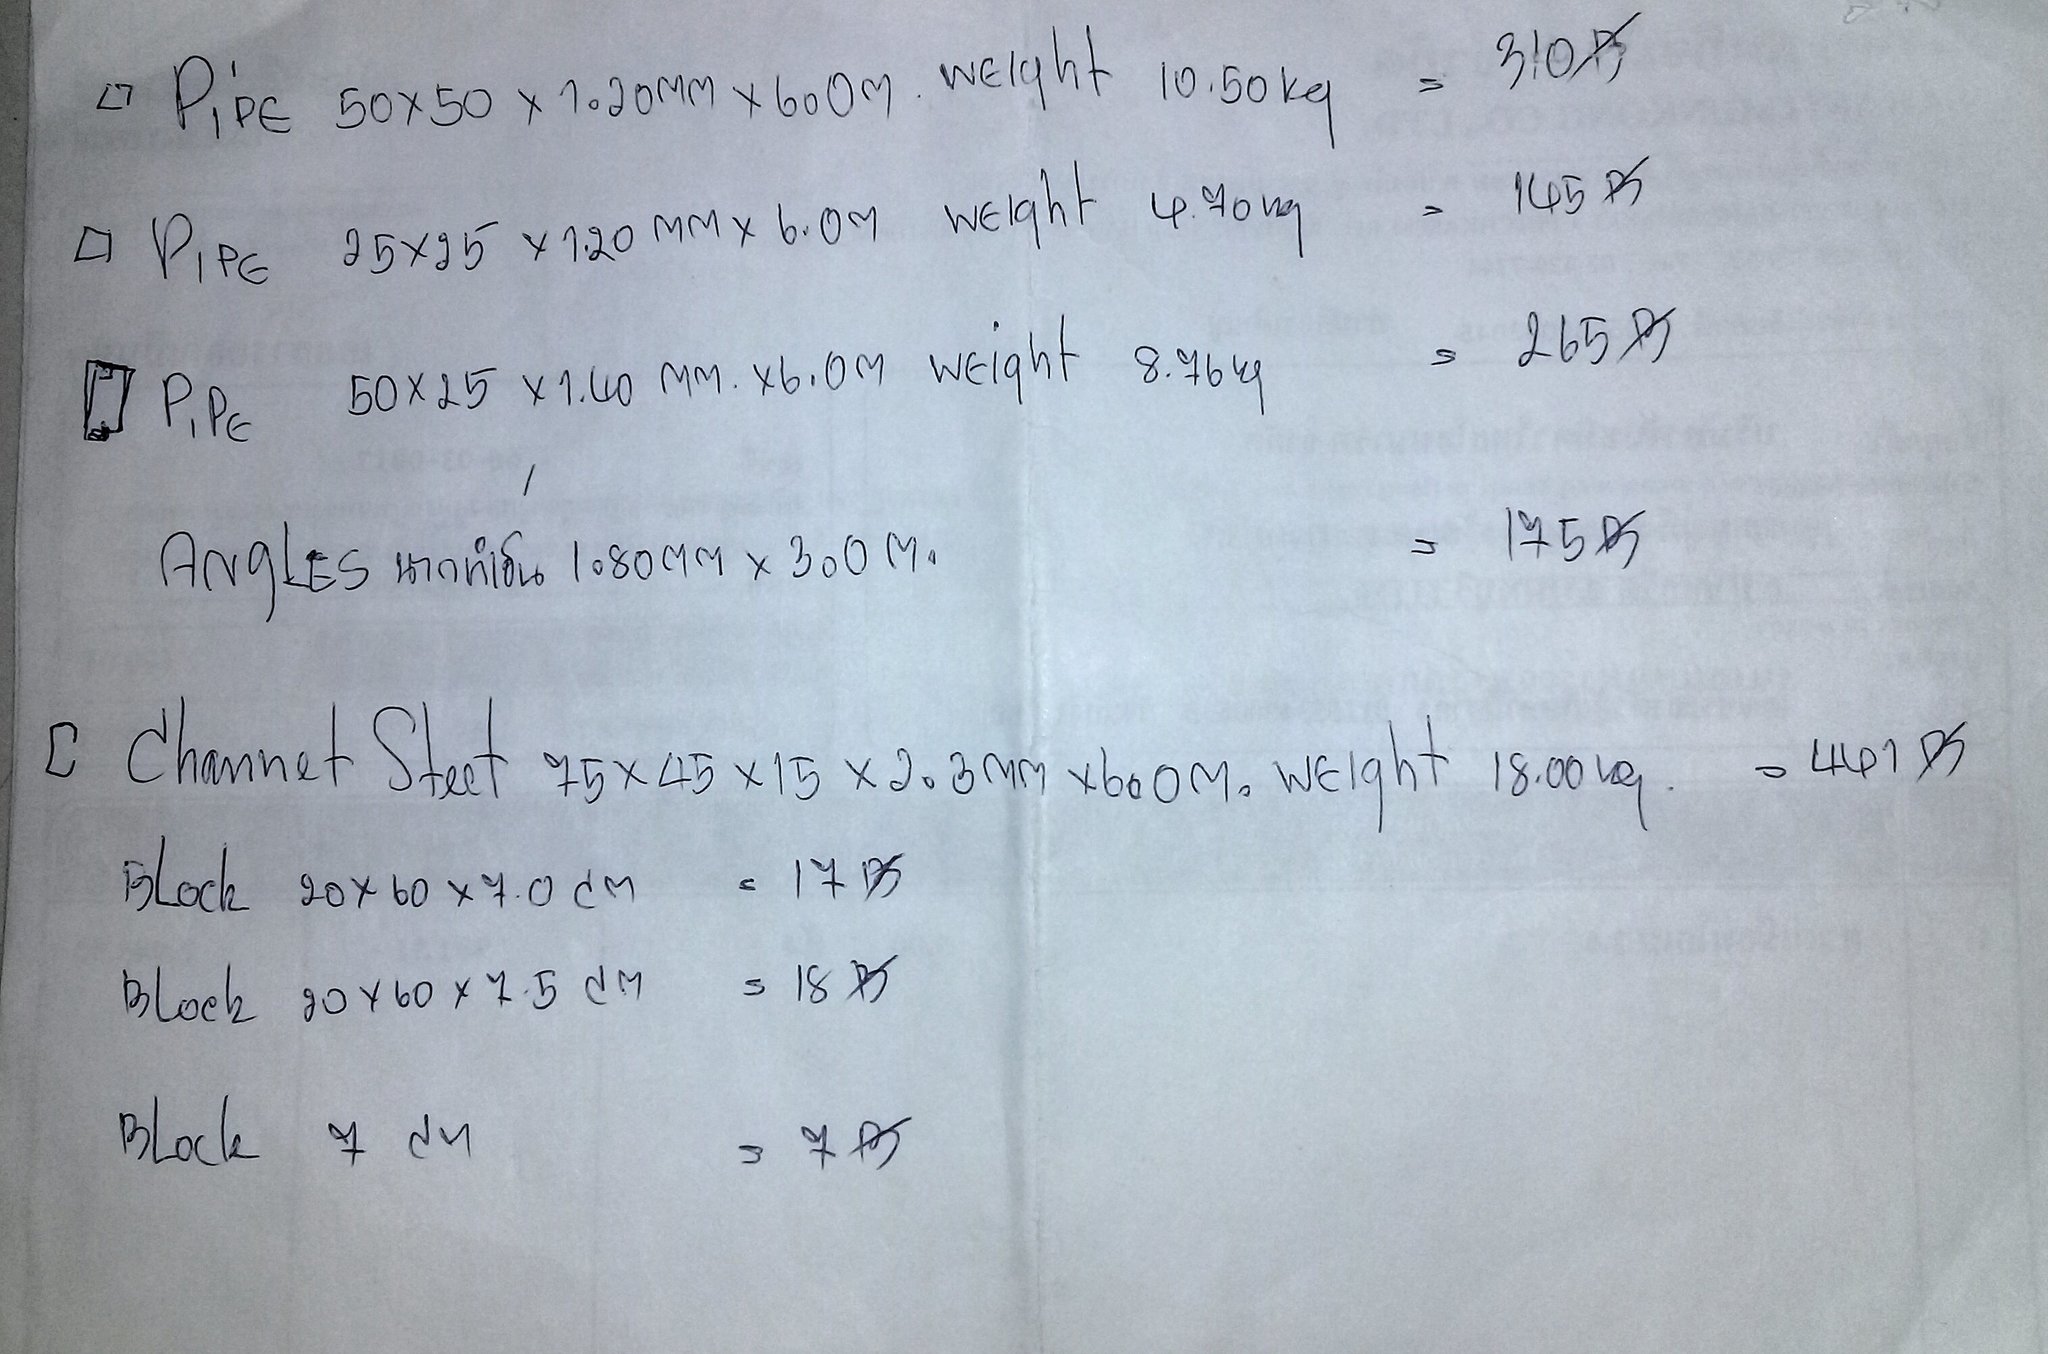 PiPE 50x50 x 1.20MM x 6.0M. WEIght 10.50kg = 310฿
PiPE 25x25 x 1.20 MM x 6.0M WEIght 4.70kg = 145฿
PiPE 50x25 x 1.40 MM. x6.0M WEight 8.76kg = 265฿
ANgLES 1.80MM x 3.0M. = 175฿
[ Channet Steet 75x45x15 x 2.3MM x6.0M. WEIght 18.00kg. = 441฿
BLock 20x60x7.0 cM = 17฿
BLock 20x60x7.5 cM = 18฿
BLock 7 cM = 7฿